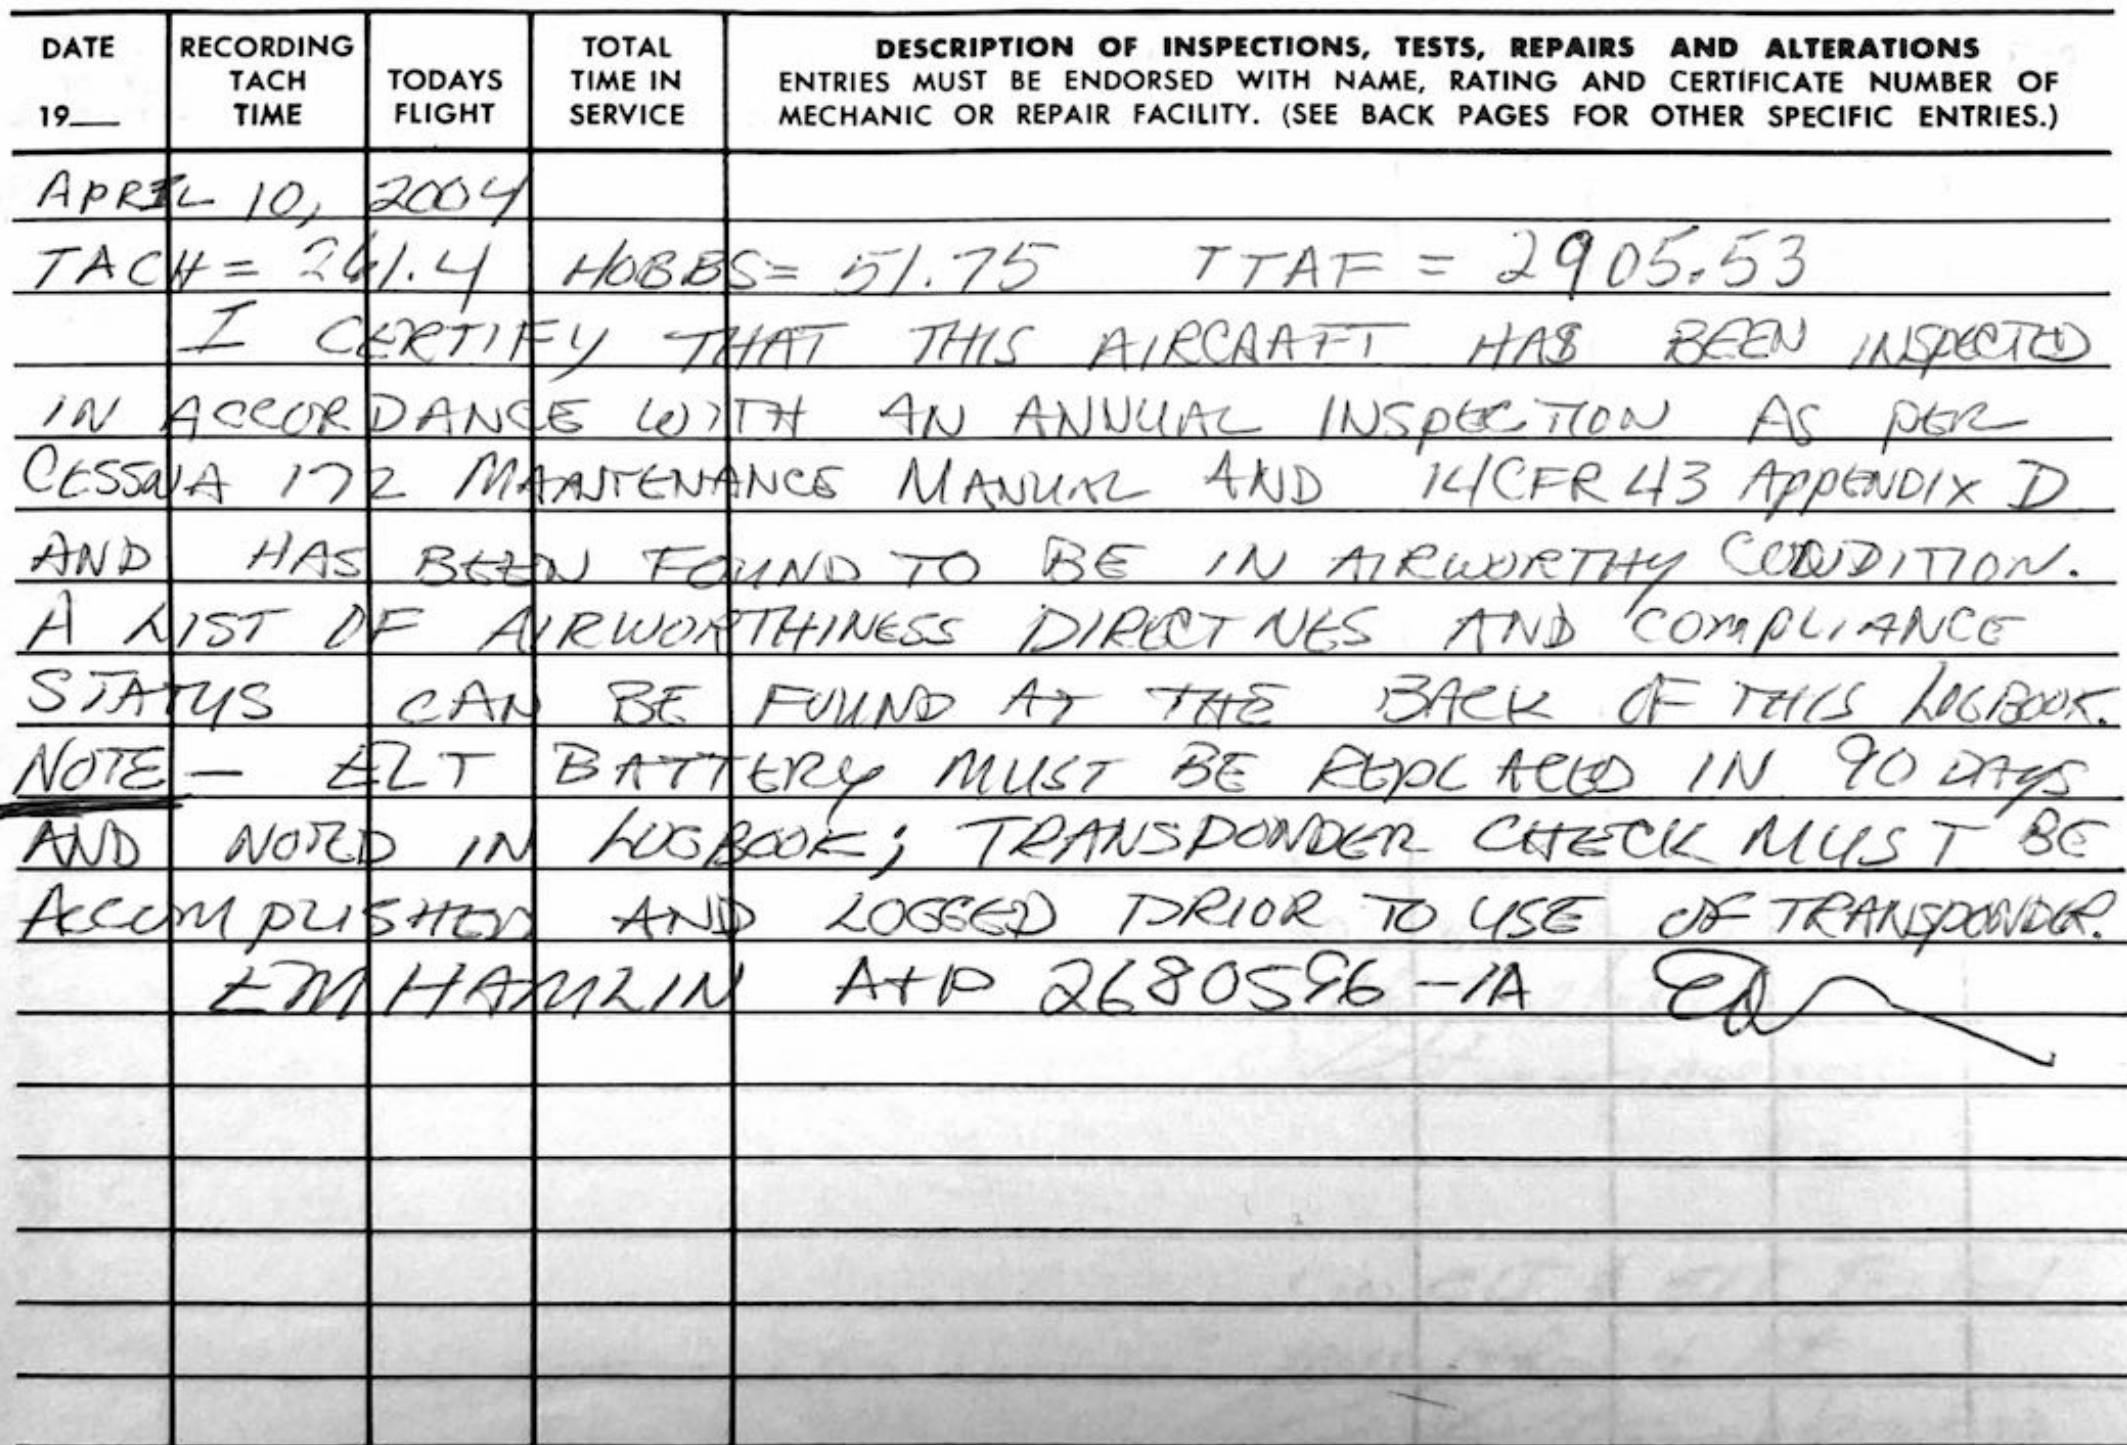 DATE RECORDING TACH TIME TODAYS FLIGHT TOTAL TIME IN SERVICE DESCRIPTION OF INSPECTIONS, TESTS, REPAIRS AND ALTERATIONS
19__ ENTRIES MUST BE ENDORSED WITH NAME, RATING AND CERTIFICATE NUMBER OF
MECHANIC OR REPAIR FACILITY. (SEE BACK PAGES FOR OTHER SPECIFIC ENTRIES.)
APRIL 10, 2004
TACH = 261.4 HOBBS = 51.75 TTAF = 2905.53
I CERTIFY THAT THIS AIRCRAFT HAS BEEN INSPECTED
IN ACCORDANCE WITH AN ANNUAL INSPECTION AS PER
CESSNA 172 MAINTENANCE MANUAL AND 14CFR43 APPENDIX D
AND HAS BEEN FOUND TO BE IN AIRWORTHY CONDITION.
A LIST OF AIRWORTHINESS DIRECTIVES AND COMPLIANCE
STATUS CAN BE FOUND AT THE BACK OF THIS LOGBOOK.
NOTE - ELT BATTERY MUST BE REPLACED IN 90 DAYS
AND NOTED IN LOGBOOK; TRANSPONDER CHECK MUST BE
ACCOMPLISHED AND LOGGED PRIOR TO USE OF TRANSPONDER.
EM HAMLIN A+P 2680596-IA